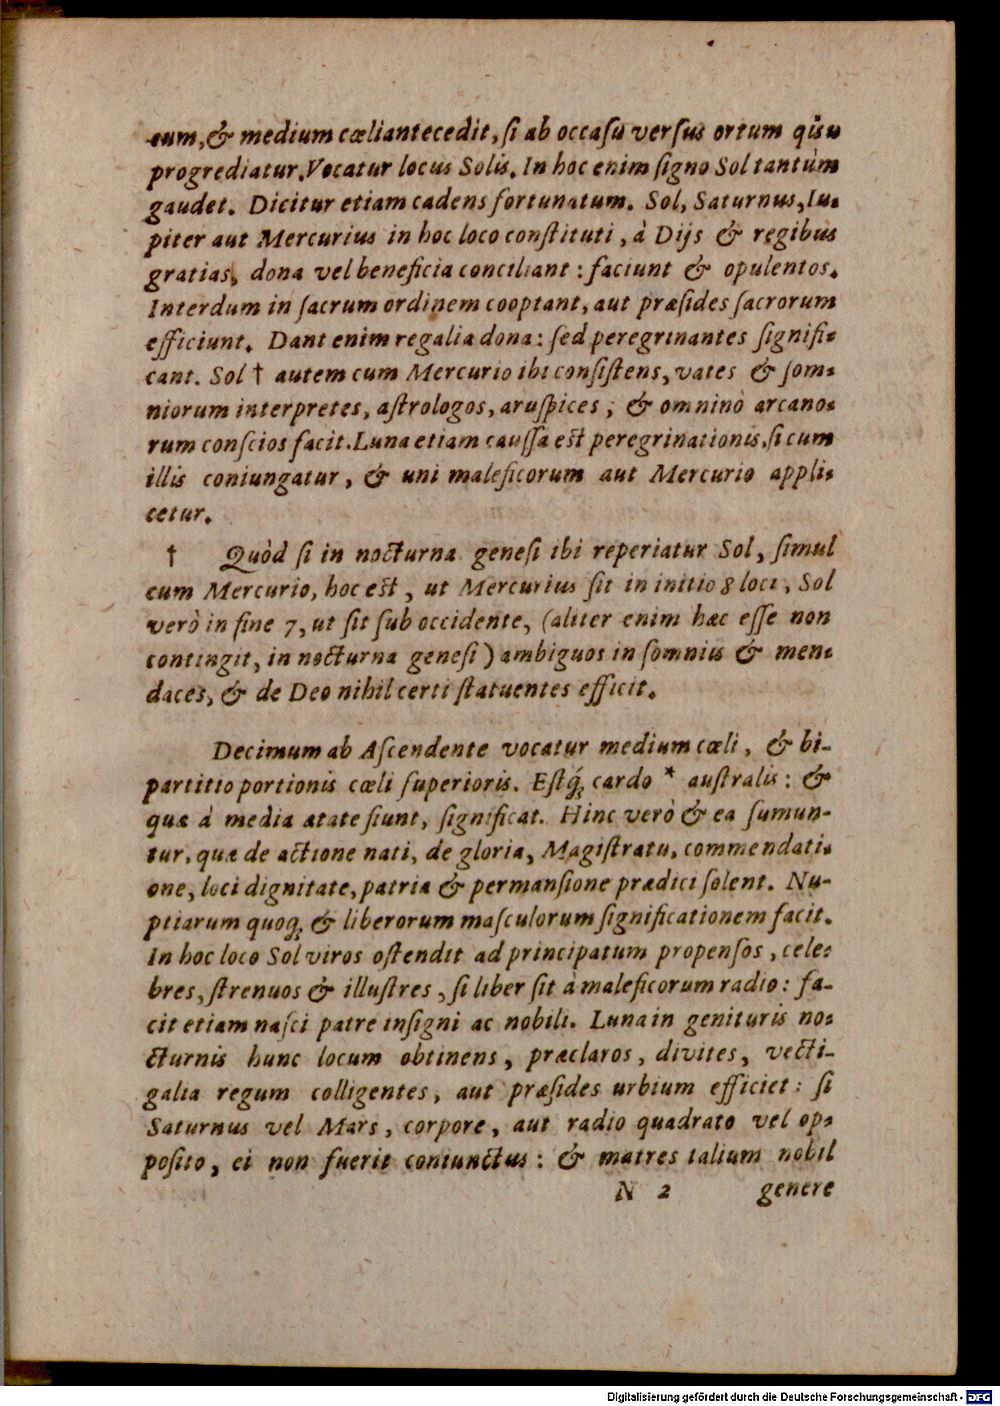 eum, & medium cœli antecedit, ſi ab occaſu verſus ortum quis
progrediatur. Vocatur locus Solis. In hoc enim ſigno Sol tantùm
gaudet. Dicitur etiam cadens fortunatum. Sol, Saturnus, Iu-
piter aut Mercurius in hoc loco conſtituti, à Dijs & regibus
gratias, dona vel beneficia conciliant: faciunt & opulentos.
Interdum in ſacrum ordinem cooptant, aut præſides ſacrorum
efficiunt. Dant enim regalia dona: ſed peregrinantes ſignifi-
cant. Sol † autem cum Mercurio ibi conſiſtens, vates & ſom-
niorum interpretes, aſtrologos, aruſpices, & omninò arcano-
rum conſcios facit. Luna etiam cauſſa eſt peregrinationis, ſi cum
illis coniungatur, & uni maleficorum aut Mercurio appli-
cetur.
† Quòd ſi in nocturna geneſi ibi reperiatur Sol, ſimul
cum Mercurio, hoc eſt, ut Mercurius ſit in initio 8 loci, Sol
verò in fine 7, ut ſit ſub occidente, (aliter enim hæc eſſe non
contingit, in nocturna geneſi) ambiguos in ſomniis & men-
daces, & de Deo nihil certi ſtatuentes efficit.
Decimum ab Aſcendente vocatur medium cœli, & bi-
partitio portionis cœli ſuperioris. Eſtq́; cardo * auſtralis: &
quæ à media ætate fiunt, ſignificat. Hinc verò & ea ſumun-
tur, quæ de actione nati, de gloria, Magiſtratu, commendati-
one, loci dignitate, patria & permanſione prædici ſolent. Nu-
ptiarum quoq; & liberorum maſculorum ſignificationem facit.
In hoc loco Sol viros oſtendit ad principatum propenſos, cele-
bres, ſtrenuos & illuſtres, ſi liber ſit à maleficorum radio: fa-
cit etiam naſci patre inſigni ac nobili. Luna in genituris no-
cturnis hunc locum obtinens, præclaros, divites, vecti-
galia regum colligentes, aut præſides urbium efficiet: ſi
Saturnus vel Mars, corpore, aut radio quadrato vel op-
poſito, ei non fuerit coniunctus: & matres talium nobil
N 2 genere
Digitalisierung gefördert durch die Deutsche Forschungsgemeinschaft - DFG